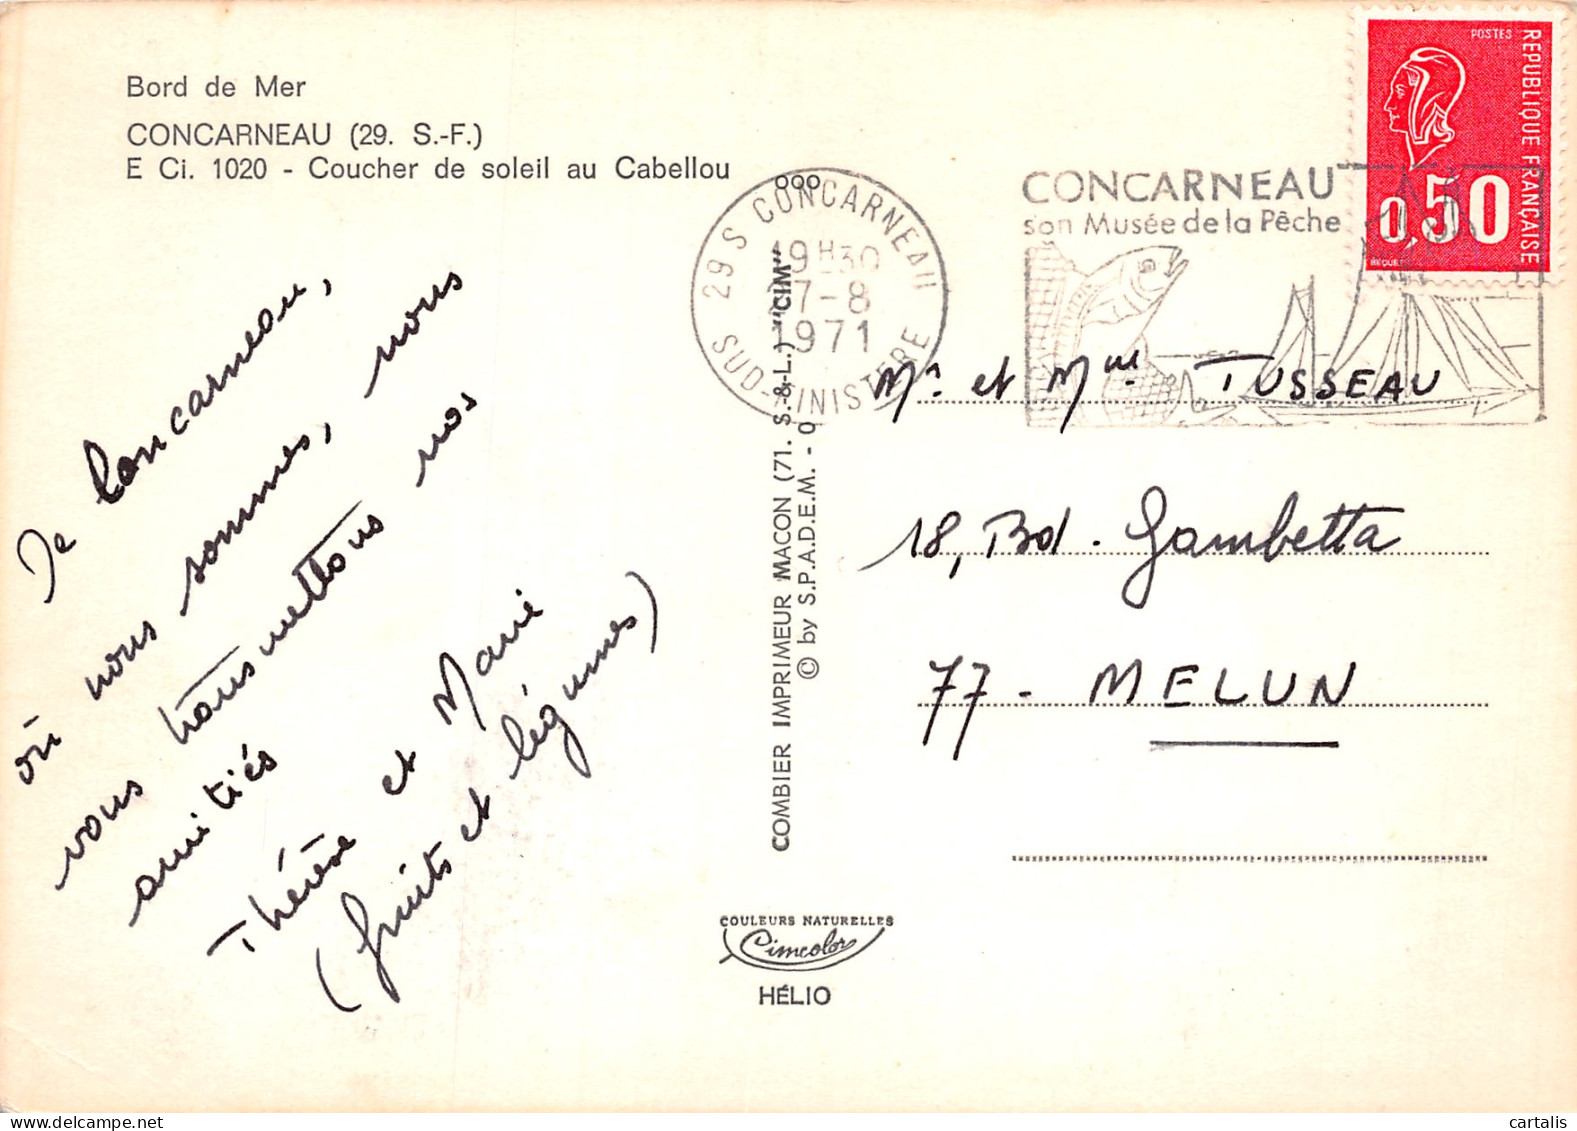 Bord de Mer
CONCARNEAU (29. S.-F.)
E Ci. 1020 - Coucher de soleil au Cabellou
De Concarneau,
où nous sommes, nous
vous transmettons nos
amitiés
Thérèse et Marie
(fruits et légumes)
COMBIER IMPRIMEUR MACON (71. S.-&-L.) "CIM"
© by S.P.A.D.E.M. - O
COULEURS NATURELLES
Cimcolor
HÉLIO
29 S CONCARNEAU
19H30
7-8
1971
SUD-FINISTERE
CONCARNEAU
son Musée de la Pêche
POSTES
REPUBLIQUE FRANÇAISE
0,50
Mr et Mme TUSSEAU
18, Bd. Gambetta
77 - MELUN
cartalis